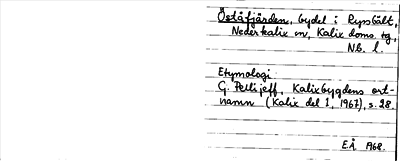 Öståfjärden, bydel i Rysbält,
Nederkalix sn, Kalix doms. tg,
N.b. l.
Etymologi
G. Pellijeff, Kalixbygdens ort-
namn (Kalix del 1, 1967), s. 28.
E.Å. 1968.